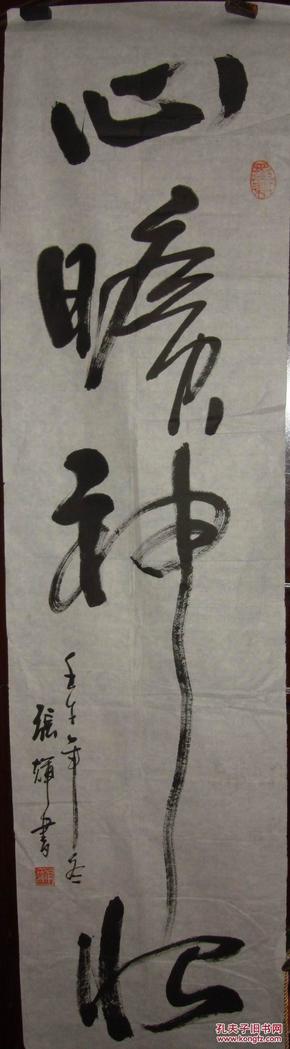 心曠神怡
壬午年冬
張輝書
孔夫子旧书网